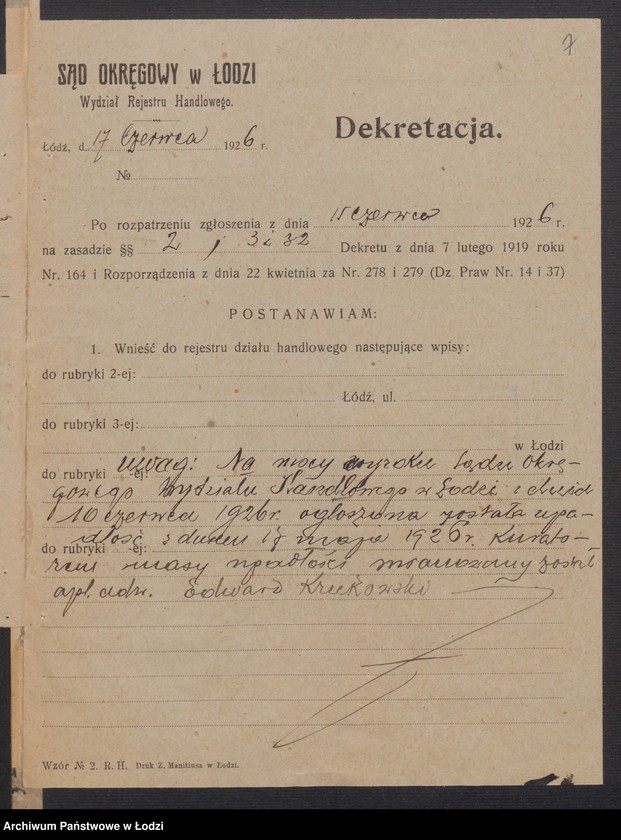 7
SĄD OKRĘGOWY w ŁODZI
Wydział Rejestru Handlowego.
Dekretacja.
Łódź, d. 17 Czerwca 1926 r.
№
Po rozpatrzeniu zgłoszenia z dnia 15 czerwca 1926 r.
na zasadzie §§ 2, 3 i 32 Dekretu z dnia 7 lutego 1919 roku
Nr. 164 i Rozporządzenia z dnia 22 kwietnia za Nr. 278 i 279 (Dz. Praw Nr. 14 i 37)
POSTANAWIAM:
1. Wnieść do rejestru działu handlowego następujące wpisy:
do rubryki 2-ej:
Łódź, ul.
do rubryki 3-ej:
w Łodzi
do rubryki -ej: uwag: Na mocy wyroku Sądu Okrę-
gowego Wydziału Handlowego w Łodzi z dnia
10 czerwca 1926 r. ogłoszona została upa-
do rubryki -ej: dłość z dniem 17 maja 1926 r. Kurato-
rem masy upadłości mianowany został
apl. adw. Edward
Wzór № 2. R. H. Druk Z. Manitiusa w Łodzi.
Archiwum Państwowe w Łodzi